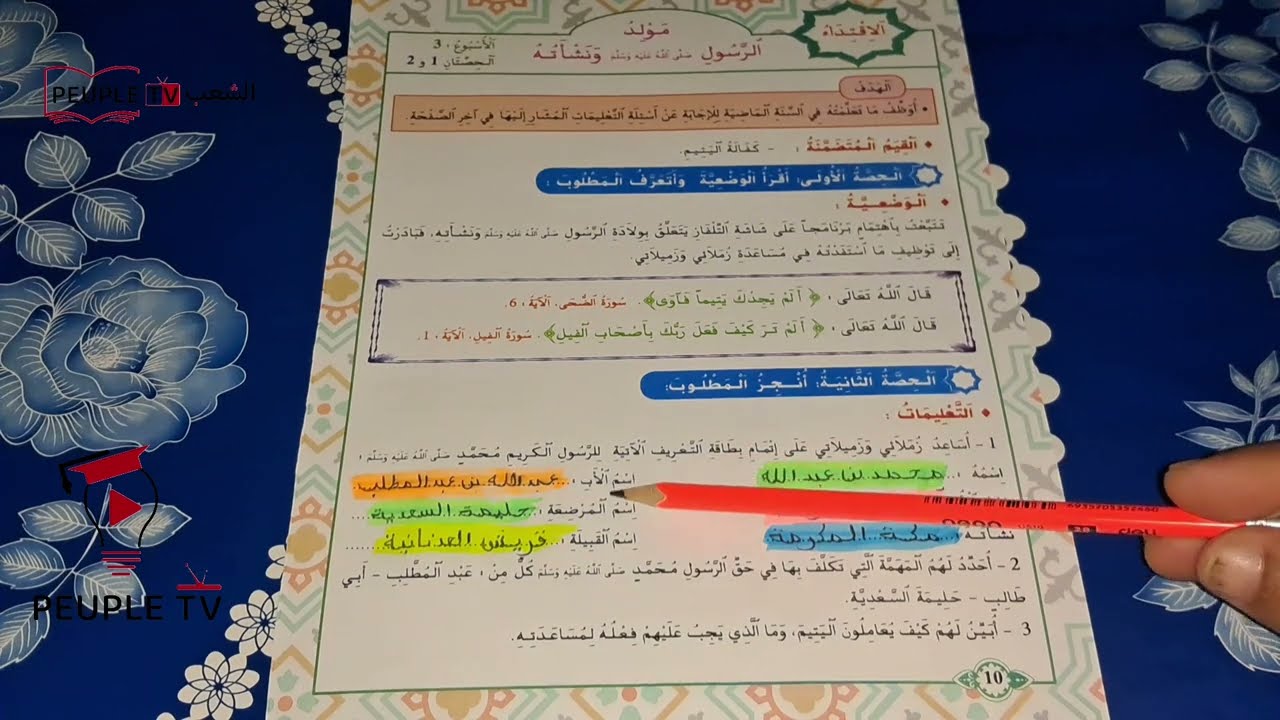 PEUPLE TV الشعب
اَلِاقْتِدَاءُ
مَوْلِدُ
اَلرَّسُولِ صَلَّى اللَّهُ عَلَيْهِ وَسَلَّمَ وَنَشْأَتُهُ
اَلْأُسْبُوعُ : 3
اَلْحِصَّتَانِ 1 و 2
اَلْهَدَفُ
• أُوَظِّفُ مَا تَعَلَّمْتُهُ فِي السَّنَةِ الْمَاضِيَةِ لِلْإِجَابَةِ عَنْ أَسْئِلَةِ التَّعْلِيمَاتِ الْمُشَارِ إِلَيْهَا فِي آخِرِ الصَّفْحَةِ.
♦ اَلْقِيَمُ الْمُتَضَمَّنَةُ : - كَفَالَةُ الْيَتِيمِ.
اَلْحِصَّةُ الْأُولَى: أَقْرَأُ الْوَضْعِيَّةَ وَأَتَعَرَّفُ الْمَطْلُوبَ :
♦ اَلْوَضْعِيَّةُ :
تَتَبَّعْتُ بِاهْتِمَامٍ بَرْنَامَجاً عَلَى شَاشَةِ التِّلْفَازِ يَتَعَلَّقُ بِوِلَادَةِ الرَّسُولِ صَلَّى اللَّهُ عَلَيْهِ وَسَلَّمَ وَنَشْأَتِهِ، فَبَادَرْتُ
إِلَى تَوْظِيفِ مَا اسْتَفَدْتُهُ فِي مُسَاعَدَةِ زُمَلَائِي وَزَمِيلَاتِي.
قَالَ اللَّهُ تَعَالَى : ﴿ أَلَمْ يَجِدْكَ يَتِيماً فَآوَى﴾. سُورَةُ الضُّحَى. اَلْآيَةُ : 6.
قَالَ اللَّهُ تَعَالَى : ﴿ أَلَمْ تَرَ كَيْفَ فَعَلَ رَبُّكَ بِأَصْحَابِ الْفِيلِ﴾. سُورَةُ الْفِيلِ. اَلْآيَةُ : 1.
اَلْحِصَّةُ الثَّانِيَةُ: أُنْجِزُ الْمَطْلُوبَ:
♦ اَلتَّعْلِيمَاتُ :
1 - أُسَاعِدُ زُمَلَائِي وَزَمِيلَاتِي عَلَى إِتْمَامِ بِطَاقَةِ التَّعْرِيفِ الْآتِيَةِ لِلرَّسُولِ الْكَرِيمِ مُحَمَّدٍ صَلَّى اللَّهُ عَلَيْهِ وَسَلَّمَ :
اِسْمُهُ : محمد بن عبد الله اِسْمُ الْأَبِ : عبد الله بن عبد المطلب
اِسْمُ الْمُرْضِعَةِ : حليمة السعدية
نَشْأَتُهُ : مكة المكرمة اِسْمُ الْقَبِيلَةِ : قريش العدنانية
2 - أُحَدِّدُ لَهُمُ الْمُهِمَّةَ الَّتِي تَكَلَّفَ بِهَا فِي حَقِّ الرَّسُولِ مُحَمَّدٍ صَلَّى اللَّهُ عَلَيْهِ وَسَلَّمَ كُلٌّ مِنْ : عَبْدِ الْمُطَّلِبِ - أَبِي
طَالِبٍ - حَلِيمَةَ السَّعْدِيَّةِ.
3 - أُبَيِّنُ لَهُمْ كَيْفَ يُعَامِلُونَ الْيَتِيمَ، وَمَا الَّذِي يَجِبُ عَلَيْهِمْ فِعْلُهُ لِمُسَاعَدَتِهِ.
10
PEUPLE TV
deli